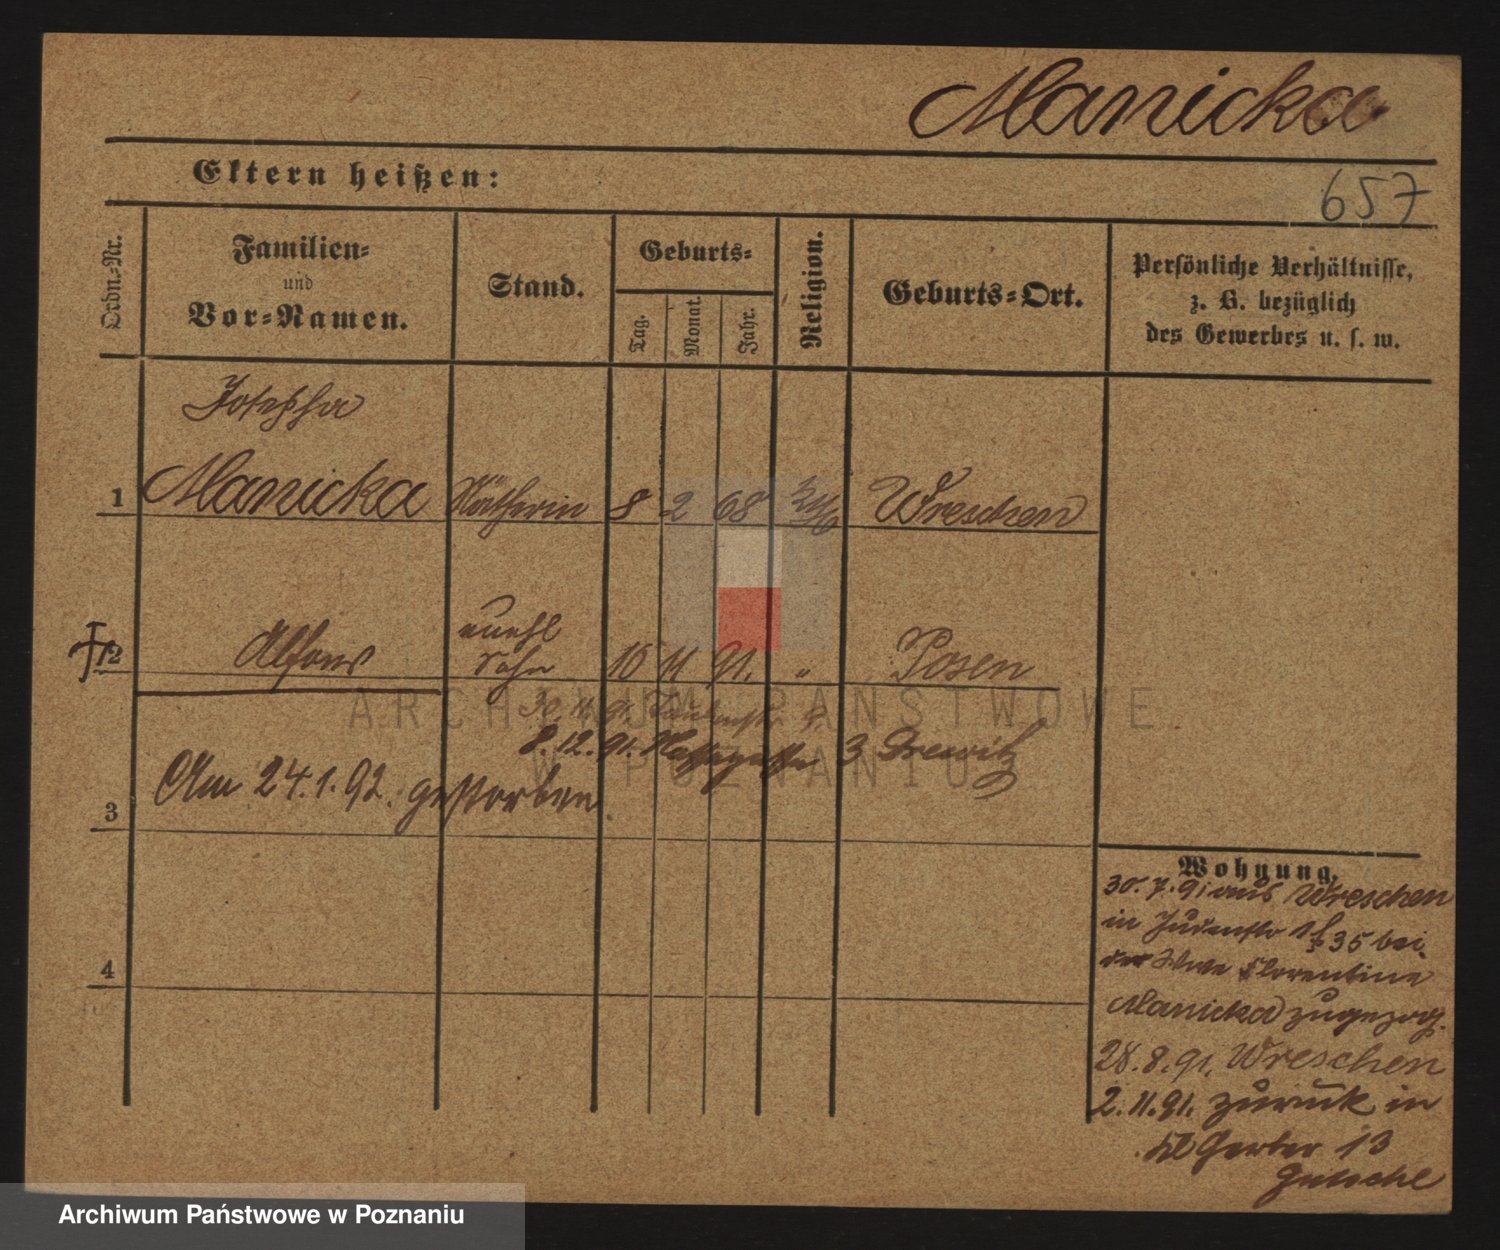 Manicka
Eltern heißen:
657
Ordn.-Nr.
Familien-
und
Vor-Namen.
Stand.
Geburts-
Tag.
Monat.
Jahr.
Religion.
Geburts-Ort.
Persönliche Verhältnisse,
z. B. bezüglich
des Gewerbes u. s. w.
Josepha
1 Manicka Nätherin 8 2 68 Wreschen
unehl
2 Alfons Sohn 16 11 91. " Posen
30.11.91. 4.
8.12.91. 3 Drewitz
Am 24.1.92. gestorben
3
4
Wohnung.
30.7.91 aus Wreschen
in Judenstr 35 bei
der Wwe Florentine
Manicka zugezog.
28.8.91. Wreschen
2.11.91. zurück in
Kl Gerber 13
ARCHIWUM PAŃSTWOWE
W POZNANIU
Archiwum Państwowe w Poznaniu